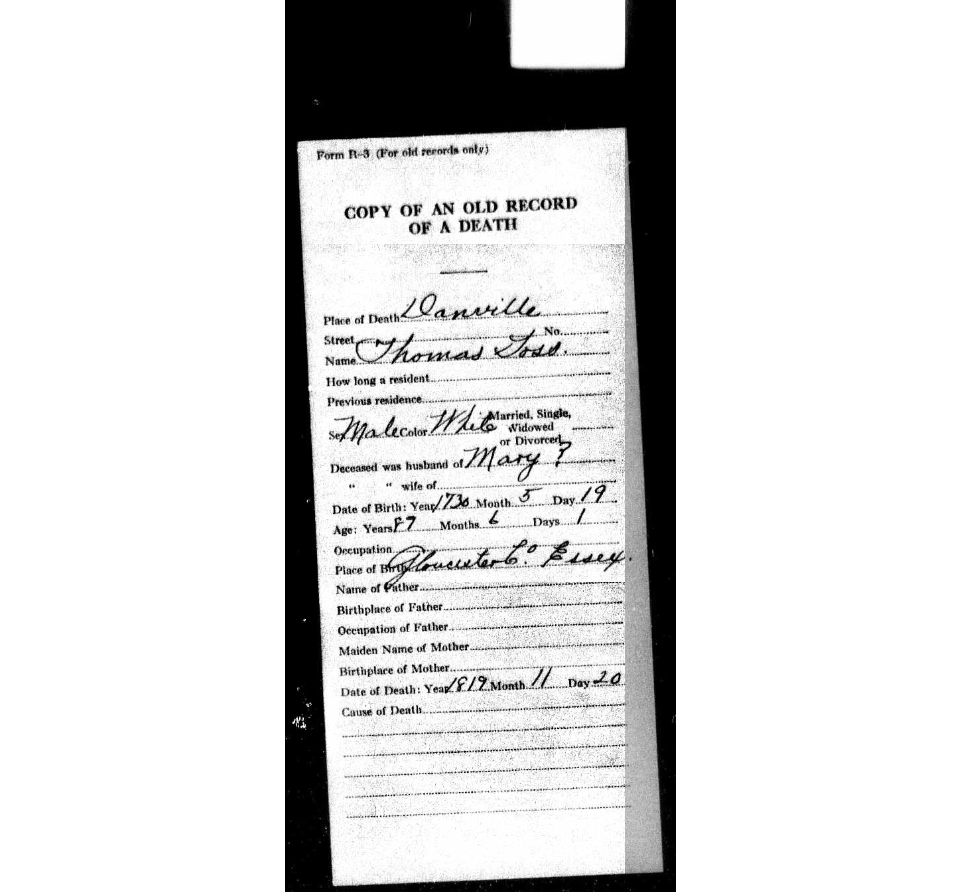 Form R-3 (For old records only)
COPY OF AN OLD RECORD
OF A DEATH
Place of Death Danville
Street No.
Name Thomas
How long a resident
Previous residence
Sex Male Color White Married, Single,
Widowed
or Divorced
Deceased was husband of Mary ?
" " wife of
Date of Birth: Year 1730 Month 5 Day 19
Age: Years 87 Months 6 Days 1
Occupation
Place of Birth Gloucester Co. Essex.
Name of Father
Birthplace of Father
Occupation of Father
Maiden Name of Mother
Birthplace of Mother
Date of Death: Year 1819 Month 11 Day 20
Cause of Death